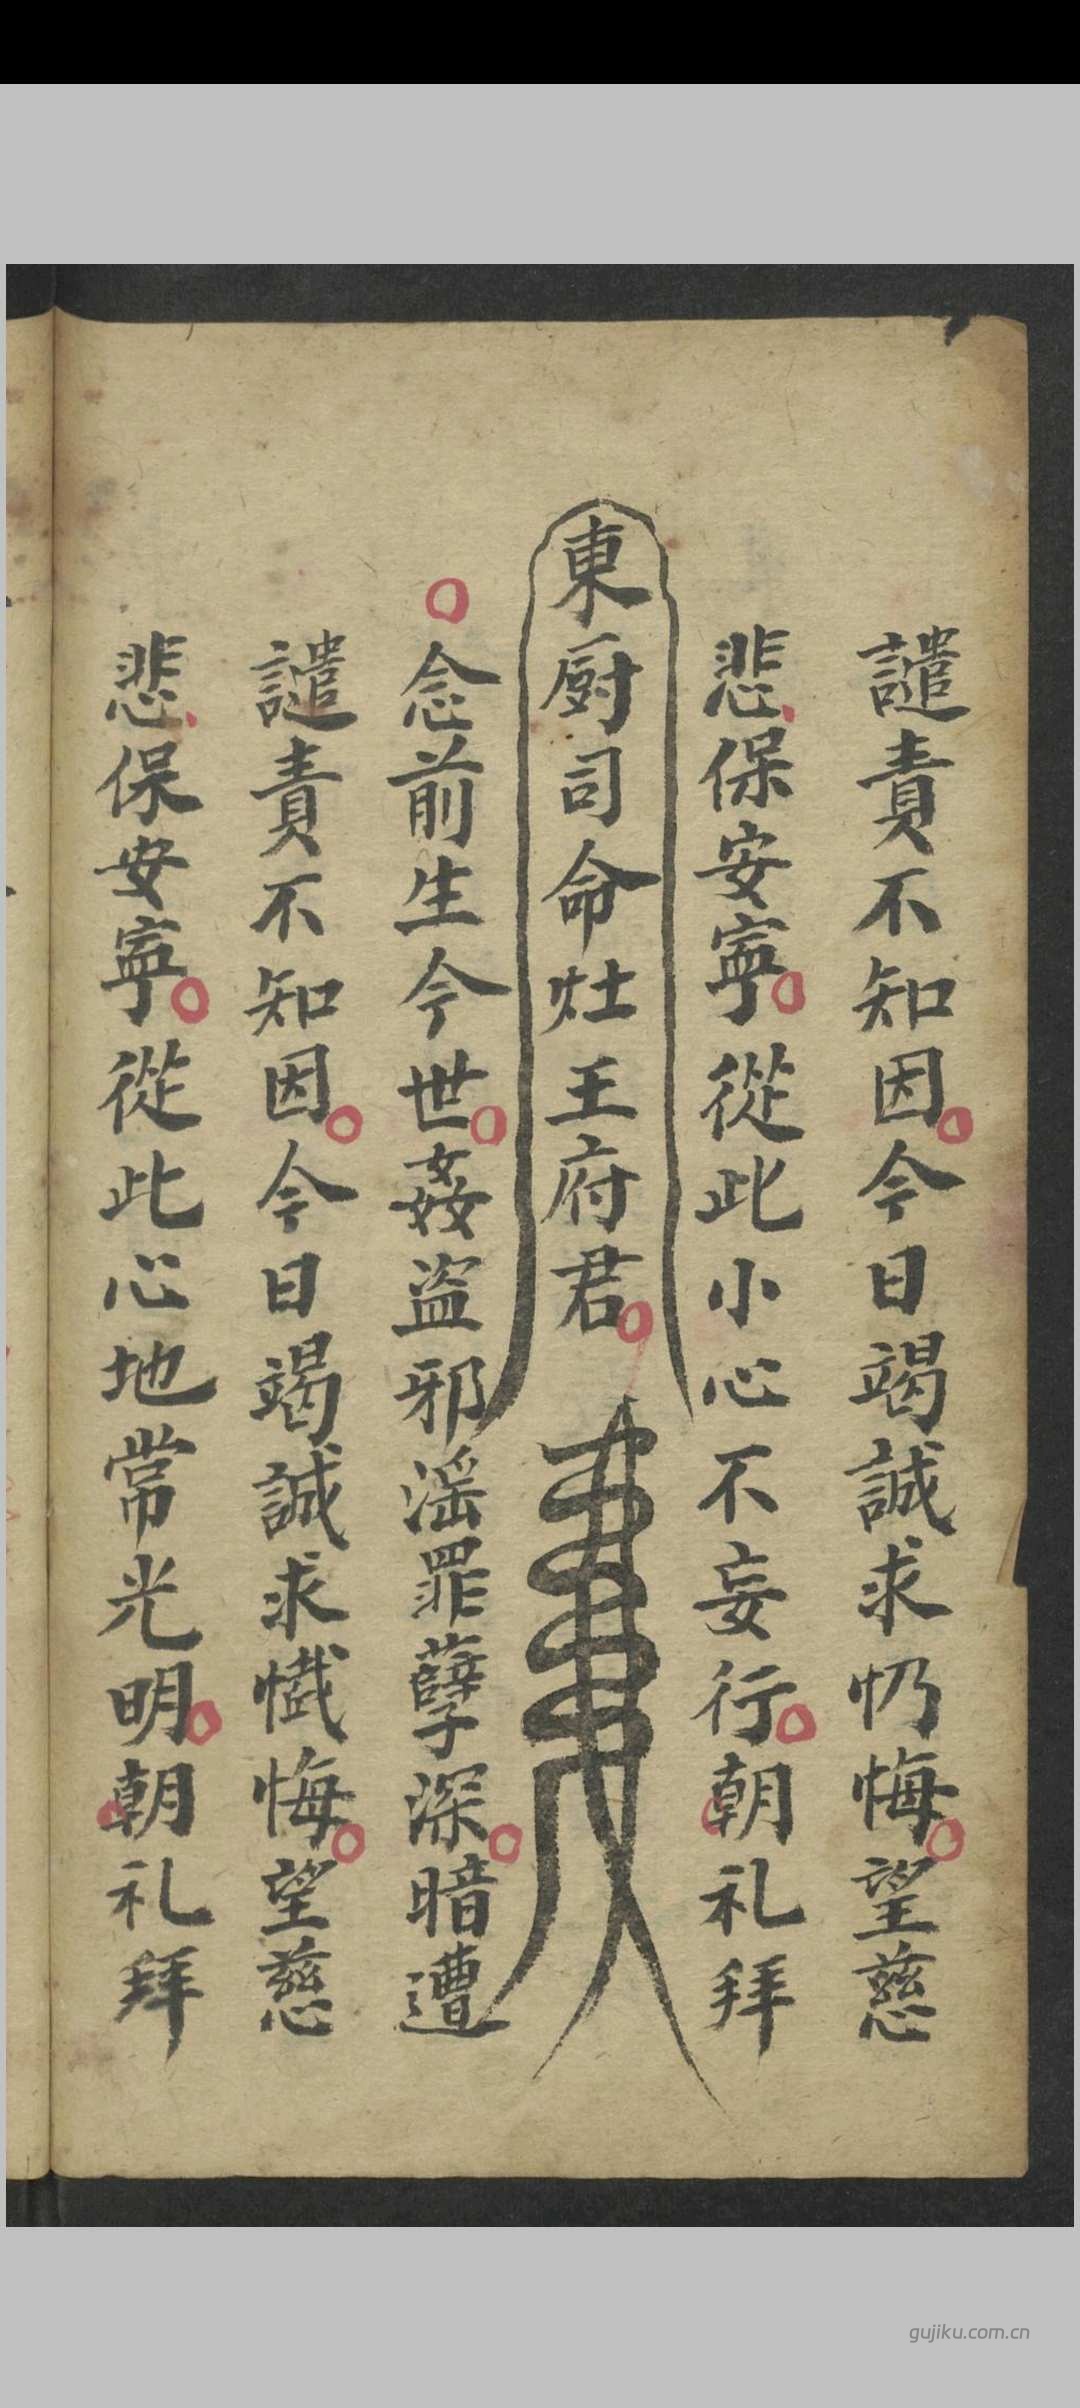 譴責不知因今日竭誠求忏悔望慈
悲保安寜從此小心不妄行朝礼拜
東厨司命灶王府君
念前生今世姦盗邪滛罪孽深暗遭
譴責不知因今日竭誠求懴悔望慈
悲保安寜從此心地常光明朝礼拜
gujiku.com.cn